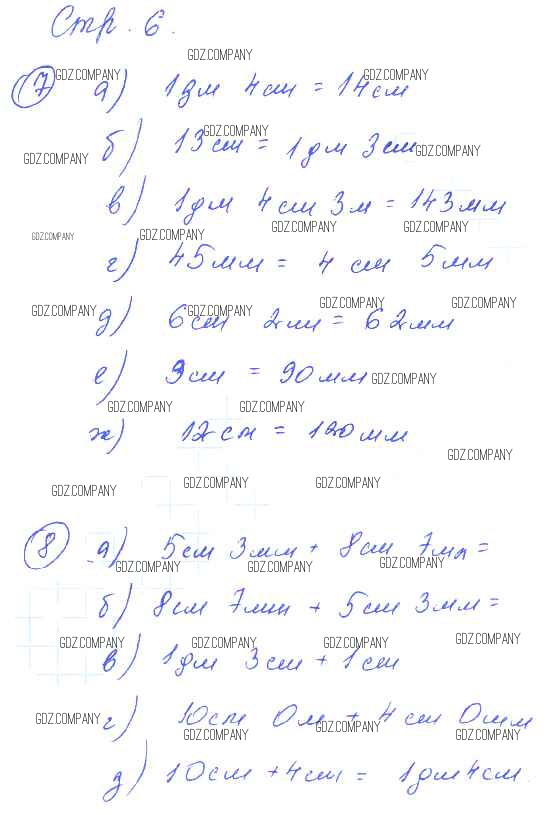 Стр. 6.
GDZ.COMPANY
7 а) 1дм 4см = 14см
GDZ.COMPANY GDZ.COMPANY
б) 13см = 1дм 3см
GDZ.COMPANY GDZ.COMPANY GDZ.COMPANY
в) 1дм 4см 3м = 143мм
GDZ.COMPANY GDZ.COMPANY GDZ.COMPANY GDZ.COMPANY
г) 45мм = 4 см 5мм
GDZ.COMPANY GDZ.COMPANY GDZ.COMPANY GDZ.COMPANY
д) 6см 2мм = 62мм
е) 9см = 90мм
GDZ.COMPANY
GDZ.COMPANY GDZ.COMPANY
ж) 12см = 120мм
GDZ.COMPANY
GDZ.COMPANY GDZ.COMPANY GDZ.COMPANY
8 а) 5см 3мм + 8см 7мм =
GDZ.COMPANY GDZ.COMPANY GDZ.COMPANY
б) 8см 7мм + 5см 3мм =
GDZ.COMPANY GDZ.COMPANY GDZ.COMPANY GDZ.COMPANY
в) 1дм 3см + 1см
г) 10см 0м + 4см 0мм
GDZ.COMPANY GDZ.COMPANY GDZ.COMPANY GDZ.COMPANY
д) 10см + 4см = 1дм 4см.